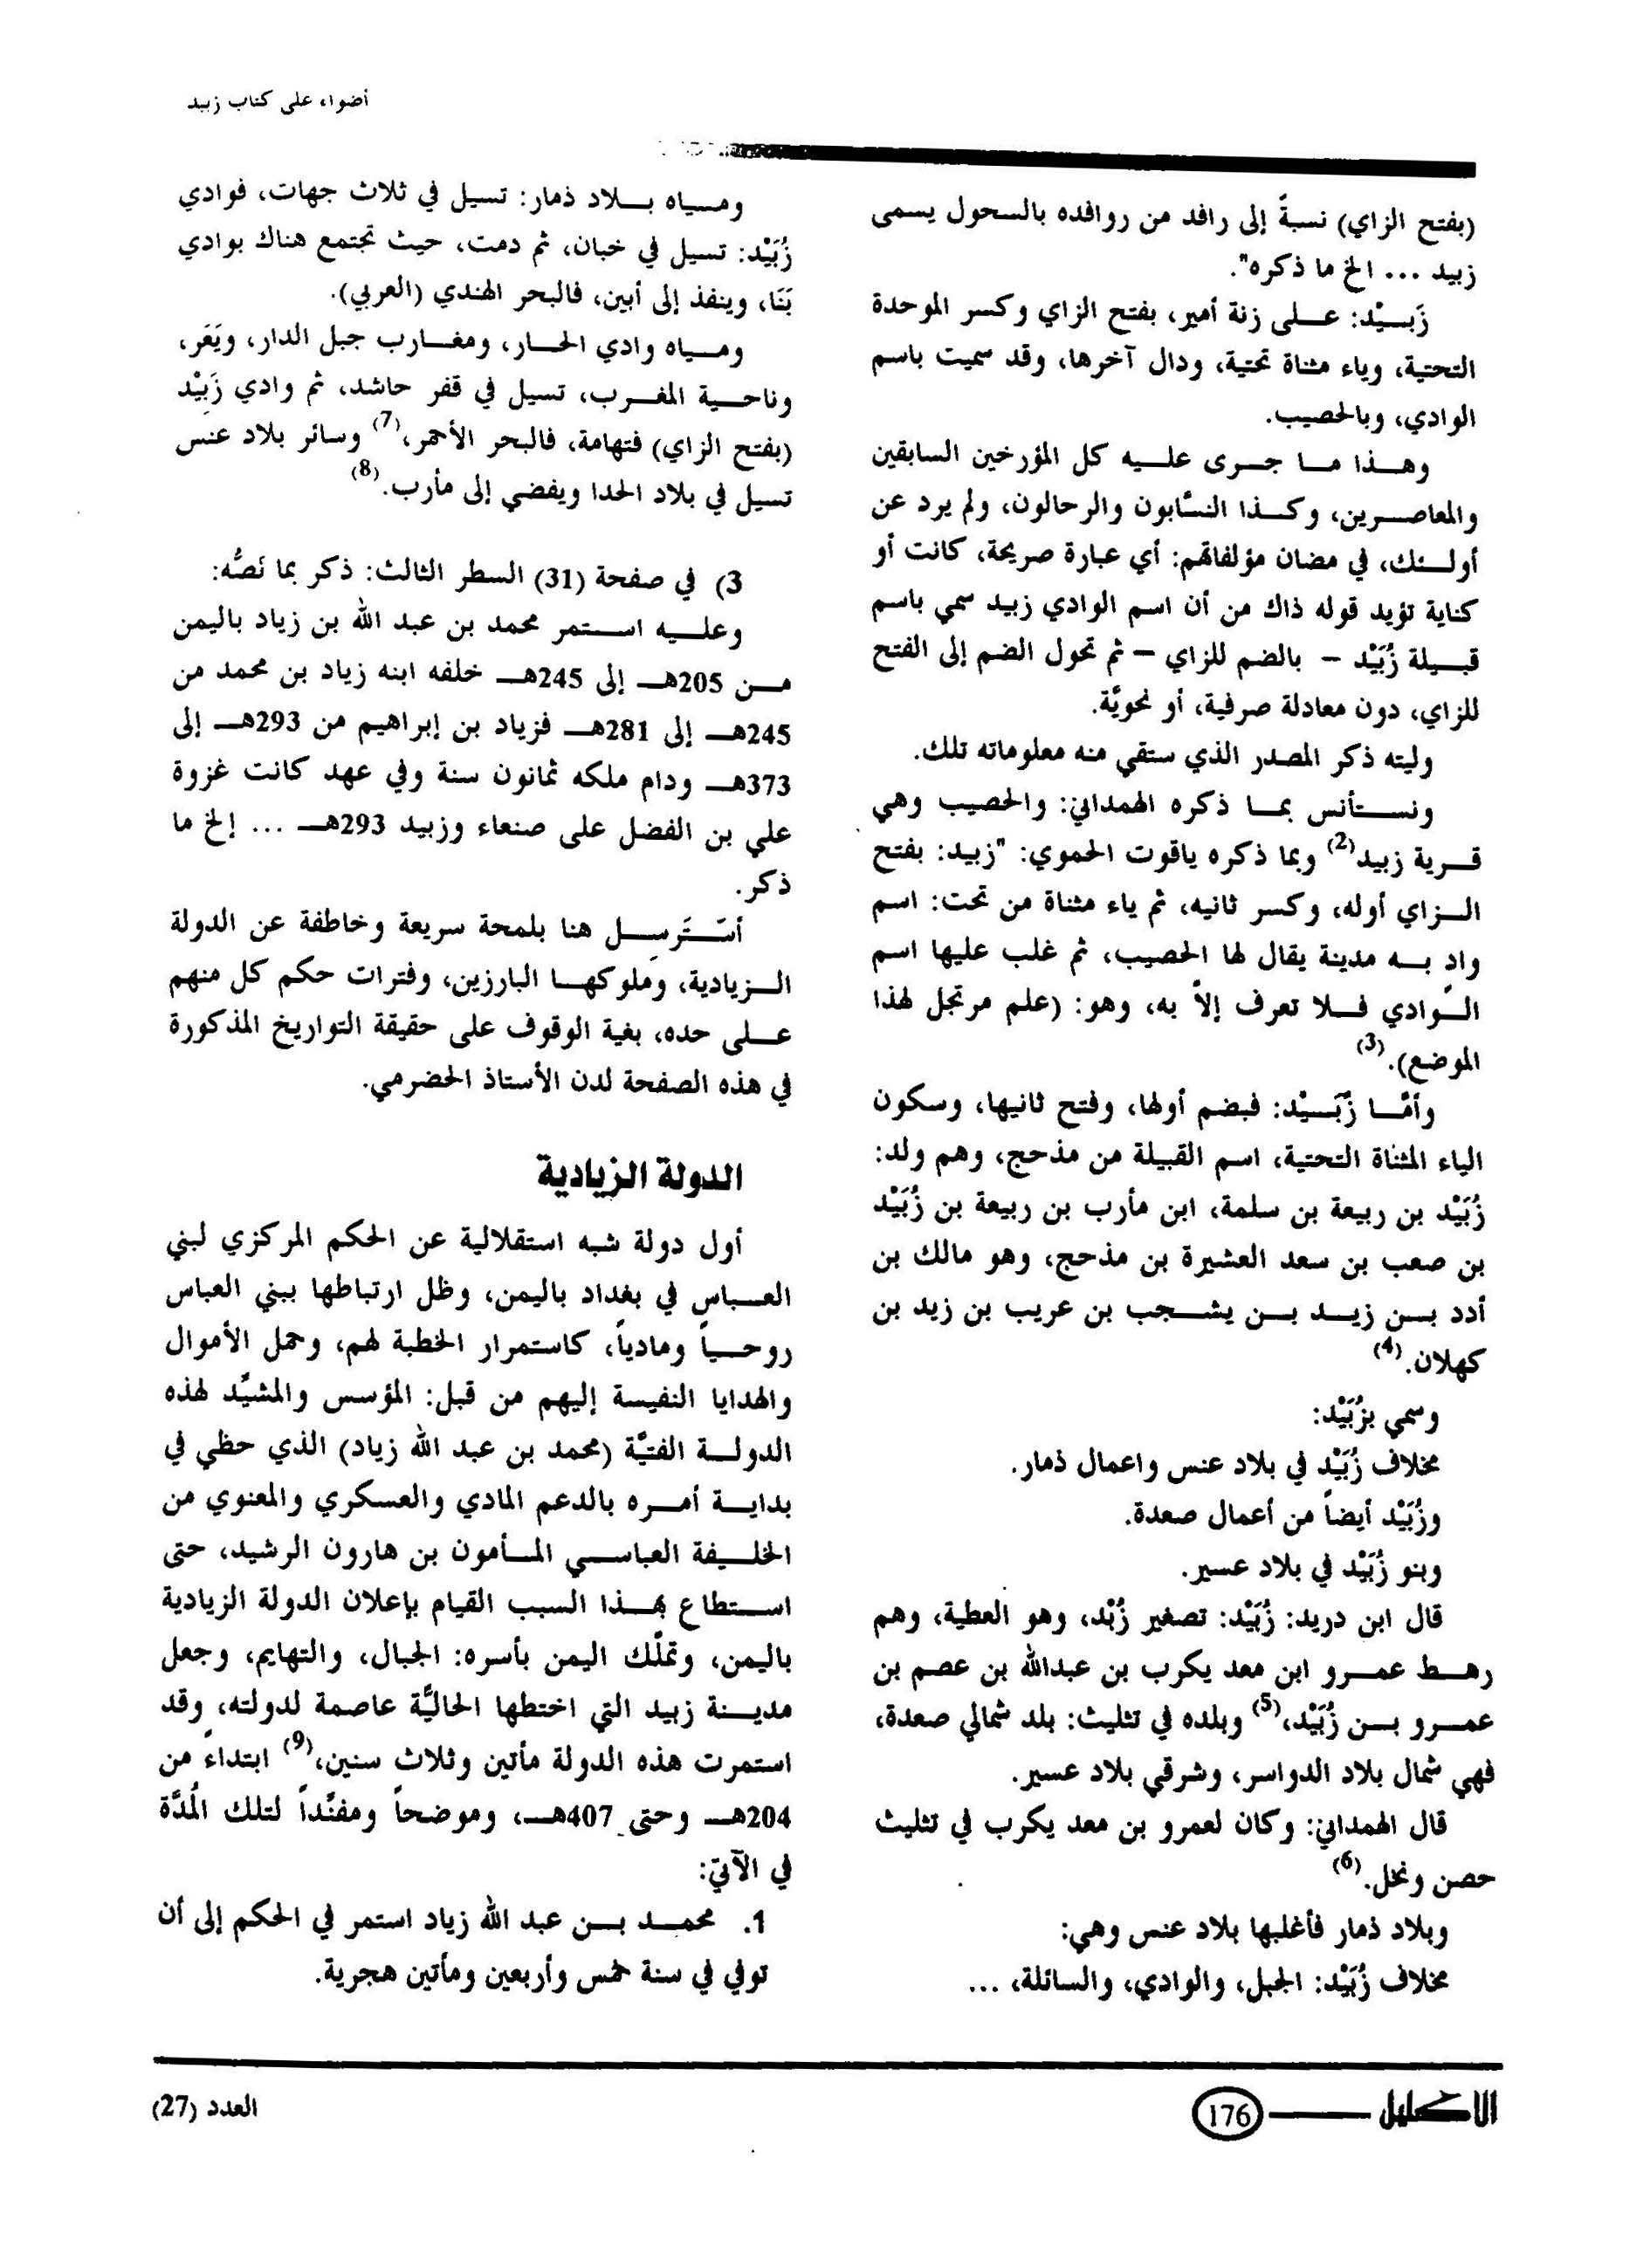 أضواء على كتاب زبيد
(بفتح الزاي) نسبةً إلى رافد من روافده بالسحول يسمى
زبيد ... الخ ما ذكره".
زَبِيْد: على زنة أمير، بفتح الزاي وكسر الموحدة
التحتية، وياء مثناة تحتية، ودال آخرها، وقد سميت باسم
الوادي، وبالحصيب.
وهذا ما جرى عليه كل المؤرخين السابقين
والمعاصرين، وكذا النسَّابون والرحالون، ولم يرد عن
أولئك، في مضان مؤلفاتهم: أي عبارة صريحة، كانت أو
كناية تؤيد قوله ذاك من أن اسم الوادي زبيد سمي باسم
قبيلة زُبَيْد – بالضم للزاي – ثم تحول الضم إلى الفتح
للزاي، دون معادلة صرفية، أو نحويَّة.
وليته ذكر المصدر الذي ستقي منه معلوماته تلك.
ونستأنس بما ذكره الهمداني: والحصيب وهي
قرية زبيد(2) وبما ذكره ياقوت الحموي: "زبيد: بفتح
الزاي أوله، وكسر ثانيه، ثم ياء مثناة من تحت: اسم
وادٍ به مدينة يقال لها الحصيب، ثم غلب عليها اسم
الوادي فلا تعرف إلاً به، وهو: (علم مرتجل لهذا
الموضع).(3)
وأمَّا زُبَيْد: فبضم أولها، وفتح ثانيها، وسكون
الياء المثناة التحتية، اسم القبيلة من مذحج، وهم ولد:
زُبَيْد بن ربيعة بن سلمة، ابن مأرب بن ربيعة بن زُبَيْد
بن صعب بن سعد العشيرة بن مذحج، وهو مالك بن
أدد بن زيد بن يشجب بن عريب بن زيد بن
كهلان.(4)
وسمي بزُبَيْد:
مخلاف زُبَيْد في بلاد عنس واعمال ذمار.
وزُبَيْد أيضاً من أعمال صعدة.
وبنو زُبَيْد في بلاد عسير.
قال ابن دريد: زُبَيْد: تصغير زُبْد، وهو العطية، وهم
رهط عمرو ابن معد يكرب بن عبدالله بن عصم بن
عمرو بن زُبَيْد،(5) وبلده في تثليث: بلد شمالي صعدة،
فهي شمال بلاد الدواسر، وشرقي بلاد عسير.
قال الهمداني: وكان لعمرو بن معد يكرب في تثليث
حصن ونخل.(6)
وبلاد ذمار فأغلبها بلاد عنس وهي:
مخلاف زُبَيْد: الجبل، والوادي، والسائلة، ...
ومياه بلاد ذمار: تسيل في ثلاث جهات، فوادي
زُبَيْد: تسيل في خبان، ثم دمت، حيث تجتمع هناك بوادي
بَنَا، وينفذ إلى أبين، فالبحر الهندي (العربي).
ومياه وادي الحار، ومغارب جبل الدار، ويَفَر،
وناحية المغرب، تسيل في قفر حاشد، ثم وادي زَبِيْد
(بفتح الزاي) فتهامة، فالبحر الأحمر،(7) وسائر بلاد عنس
تسيل في بلاد الحدا ويفضي إلى مأرب.(8)
3) في صفحة (31) السطر الثالث: ذكر بما نَصُّه:
وعليه استمر محمد بن عبد الله بن زياد باليمن
من 205هـ إلى 245هـ خلفه ابنه زياد بن محمد من
245هـ إلى 281هـ فزياد بن إبراهيم من 293هـ إلى
373هـ ودام ملكه ثمانون سنة وفي عهد كانت غزوة
علي بن الفضل على صنعاء وزبيد 293هـ ... إلخ ما
ذكر.
أسْتَرسِل هنا بلمحة سريعة وخاطفة عن الدولة
الزيادية، وملوكها البارزين، وفترات حكم كل منهم
على حده، بغية الوقوف على حقيقة التواريخ المذكورة
في هذه الصفحة لدن الأستاذ الحضرمي.
الدولة الزيادية
أول دولة شبه استقلالية عن الحكم المركزي لبني
العباس في بغداد باليمن، وظل ارتباطها ببني العباس
روحياً ومادياً، كاستمرار الخطبة لهم، وحمل الأموال
والهدايا النفيسة إليهم من قبل: المؤسس والمشيَّد لهذه
الدولة الفتيَّة (محمد بن عبد الله زياد) الذي حظي في
بداية أمره بالدعم المادي والعسكري والمعنوي من
الخليفة العباسي المأمون بن هارون الرشيد، حتى
استطاع بهذا السبب القيام بإعلان الدولة الزيادية
باليمن، وتملَّك اليمن بأسره: الجبال، والتهايم، وجعل
مدينة زبيد التي اختطها الحاليَّة عاصمة لدولته، وقد
استمرت هذه الدولة مأتين وثلاث سنين،(9) ابتداءً من
204هـ وحتى 407هـ، وموضحاً ومفنَّداً لتلك المُدَّة
في الآتي:
1. محمد بن عبد الله زياد استمر في الحكم إلى أن
توفي في سنة خمس وأربعين ومأتين هجرية.
الاكليل
176
العدد (27)